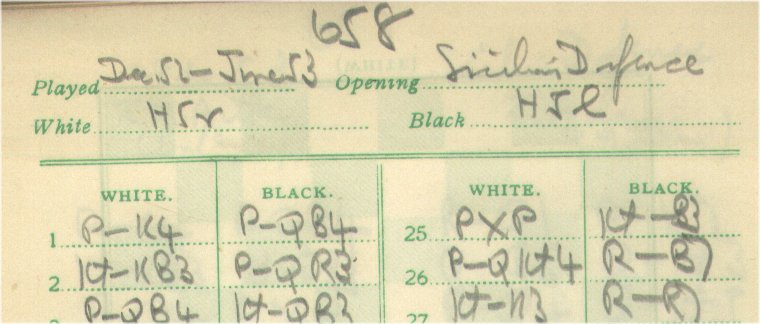 658
Played Dec. 52 - June 53 Opening Sicilian Defence
White Black
WHITE. BLACK. WHITE. BLACK.
1 P-K4 P-QB4 25 PXP Kt-B3
2 Kt-KB3 P-QR3 26 P-QKt4 R-B1
P-QB4 Kt-QB3 27 Kt-K3